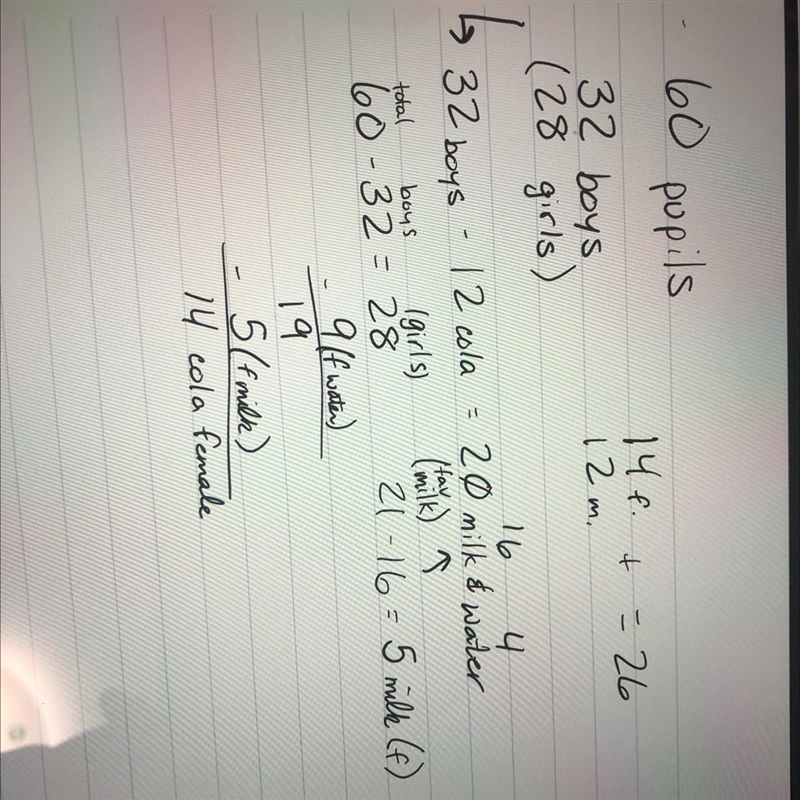 - 60 pupils
32 boys
(28 girls)
14 f. + = 26
12 m.
16 4
↳ 32 boys - 12 cola = 20 milk & water
(fav milk) ↑
total boys (girls)
60 - 32 = 28
21 - 16 = 5 milk (f)
- 9 (f water)
19
- 5 (f milk)
14 cola female